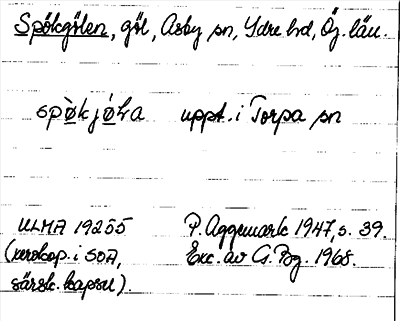 Spökgölen, göl, Asby sn, Ydre hd, Ög. län.
spø̀kjø̀La uppt. i Torpa sn
ULMA 19255 P. Aggemark 1947, s. 39.
(verokop. i SOA, Exc. av G. Bg. 1968.
särsk. kapsel).